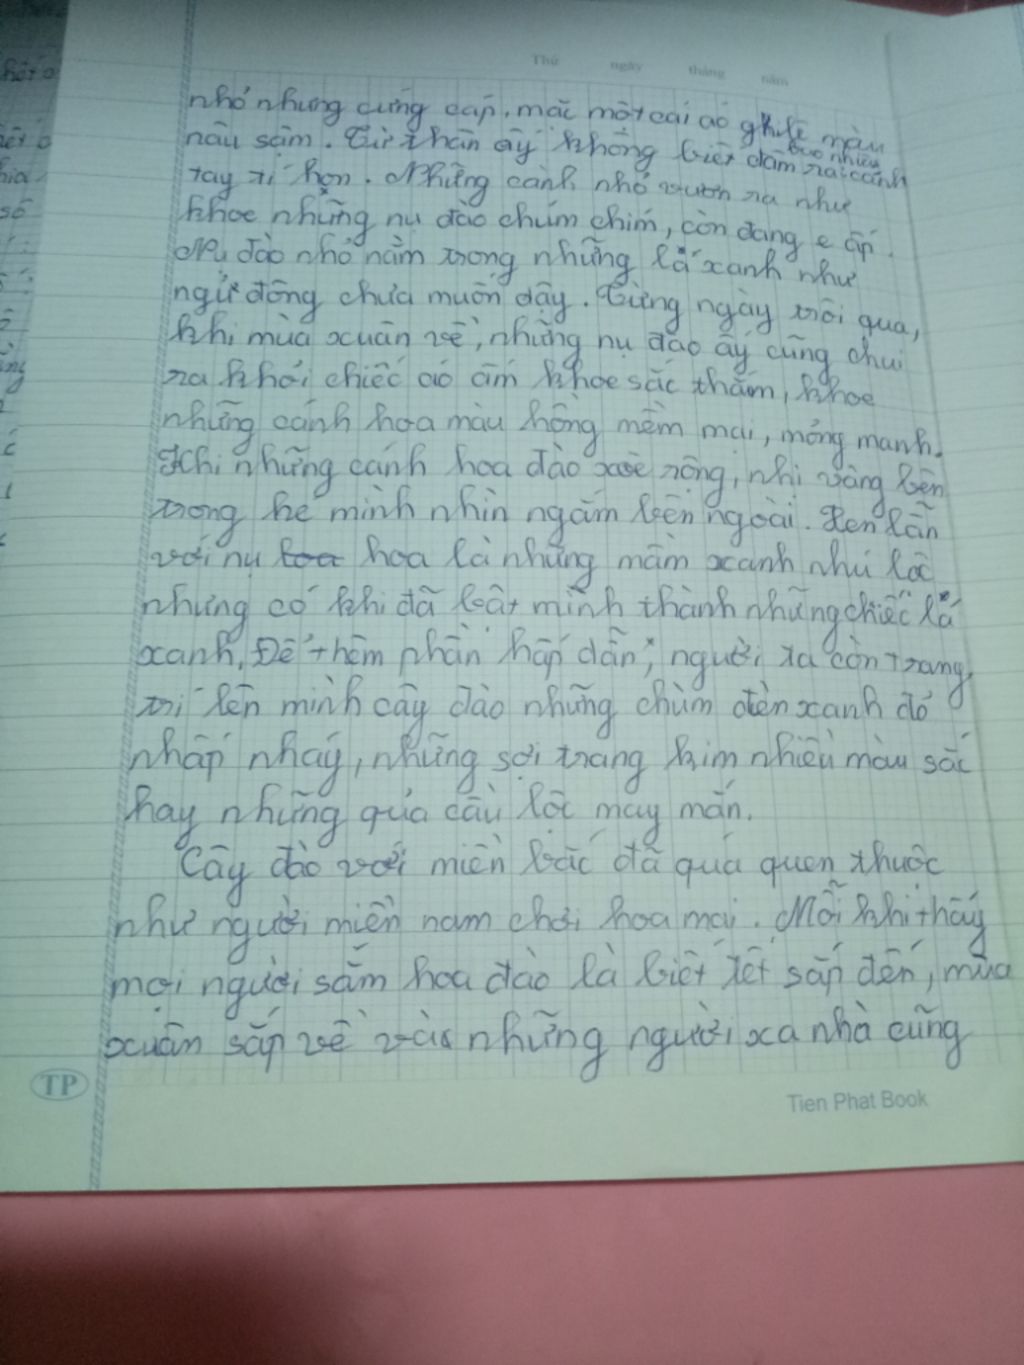 Thứ ngày tháng năm
nhỏ nhưng cứng cáp, mặc một cái áo ghi lê màu
nâu sẫm. Từ thân ấy không biết bao nhiêu đâm ra cành
tay tí hon. Những cành nhỏ vươn ra như
khoe những nụ đào chúm chím, còn đang e ấp.
Nụ đào nhỏ nằm trong những lá xanh như
ngủ đông chưa muốn dậy. Từng ngày trôi qua,
khi mùa xuân về, những nụ đào ấy cũng chui
ra khỏi chiếc áo ấm khoe sắc thắm, khoe
những cánh hoa màu hồng mềm mại, mỏng manh.
Khi những cánh hoa đào xoè rộng, nhị vàng bên
trong hé mình nhìn ngắm bên ngoài. Xen lẫn
với nụ hoa là những mầm xanh nhú lộc
nhưng có khi đã bật mình thành những chiếc lá
xanh. Để thêm phần hấp dẫn, người ta còn trang
trí lên mình cây đào những chùm đèn xanh đỏ
nhấp nháy, những sợi trang kim nhiều màu sắc
hay những quả cầu lộc may mắn.
Cây đào với miền bắc đã quá quen thuộc
như người miền nam chơi hoa mai. Mỗi khi thấy
mọi người sắm hoa đào là biết tết sắp đến, mùa
xuân sắp về và những người xa nhà cũng
TP
Tien Phat Book